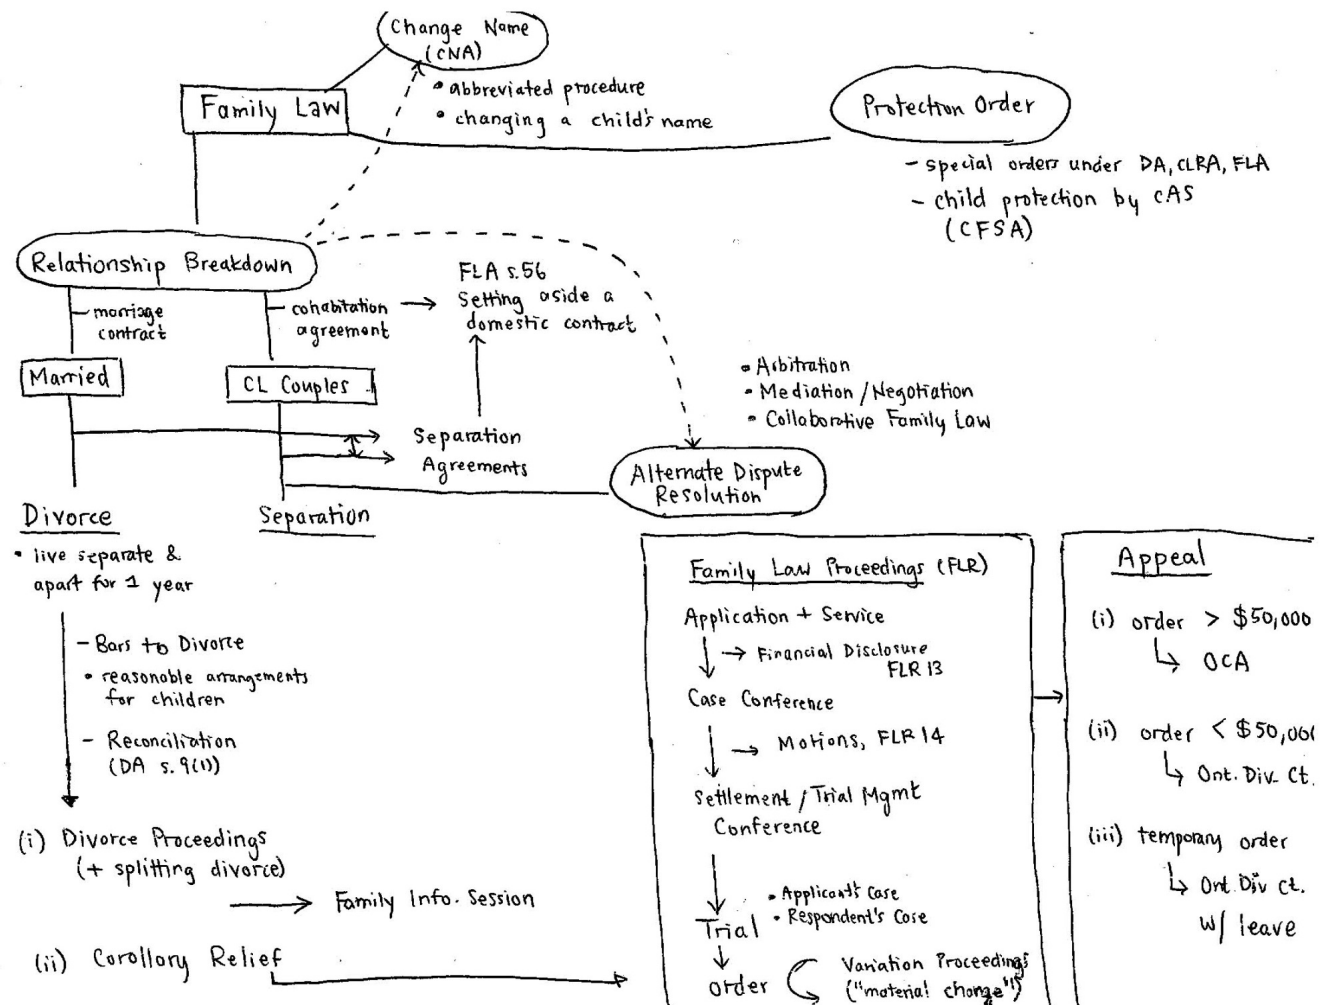 Change Name
(CNA)
• abbreviated procedure
• changing a child's name
Family Law
Protection Order
- special orders under DA, CLRA, FLA
- child protection by CAS
(CFSA)
Relationship Breakdown
- marriage
contract
- cohabitation
agreement
FLA s.56
Setting aside a
domestic contract
Married
CL Couples
• Arbitration
• Mediation / Negotiation
• Collaborative Family Law
Separation
Agreements
Alternate Dispute
Resolution
Divorce
• live separate &
apart for 1 year
Separation
- Bars to Divorce
• reasonable arrangements
for children
- Reconciliation
(DA s. 9(1))
(i) Divorce Proceedings
(+ splitting divorce)
Family Info. Session
(ii) Corollory Relief
Family Law Proceedings (FLR)
Application + Service
Financial Disclosure
FLR 13
Case Conference
Motions, FLR 14
Settlement / Trial Mgmt
Conference
• Applicant's Case
• Respondent's Case
Trial
order
Variation Proceedings
("material change")
Appeal
(i) order > $50,000
OCA
(ii) order < $50,000
Ont. Div. Ct.
(iii) temporary order
Ont. Div Ct.
w/ leave